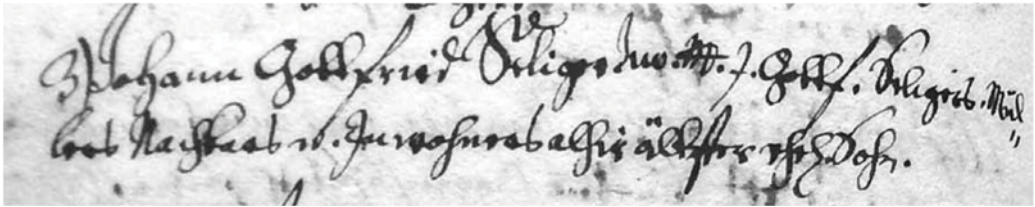 3) Johann Gottfried Seliger Juv. Mstr. J. Gottf. Seligers. Mül=
lers Nachbars u. Inwohners alhir ältster ehel. Sohn.